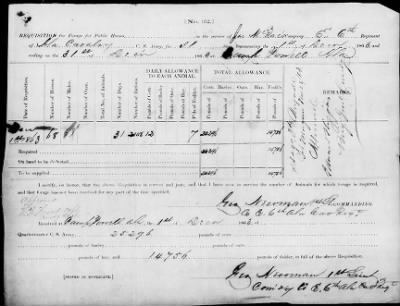 [No. 162.]
REQUISITION for Forage for Public Horses, in the service of Co E. 6th Regiment
of Ala Cavalry C. S. Army, for 31 days, commencing the 1st of Decr 1863
and ending on the 31st of Decr 1863, at Camp Powell Ala
Date of Requisition.
Number of Horses.
Number of Mules.
Number of Oxen.
Total No. of Animals.
Number of Days.
DAILY ALLOWANCE TO EACH ANIMAL.
Pounds of Corn.
Pounds of Barley.
Pounds of Oats.
Pounds of Hay.
Pounds of Fodder.
TOTAL ALLOWANCE.
Corn. Barley. Oats. Hay. Fodder.
REMARKS.
1st 1863 68 31 12 7 25296 14756
Required 25296 14756
On hand to be deducted
To be supplied 25296 14756
I certify, on honor, that the above Requisition is correct and just; and that I have now in service the number of Animals for which forage is required, and that forage has not been received for any part of the time specified.
Geo Newman 1st Lieut COMMANDING
Co E. 6th Ala Cav Regt
Received at Camp Powell Ala 1st of Decr 1863, of
Quartermaster C. S. Army, 25296 pounds of corn,
pounds of barley, pounds of oats,
pounds of hay, and 14756 pounds of fodder, in full of the above Requisition.
Geo Newman 1st Lieut
[SIGNED IN DUPLICATE.] Comdg Co E. 6th Ala Cav Regt